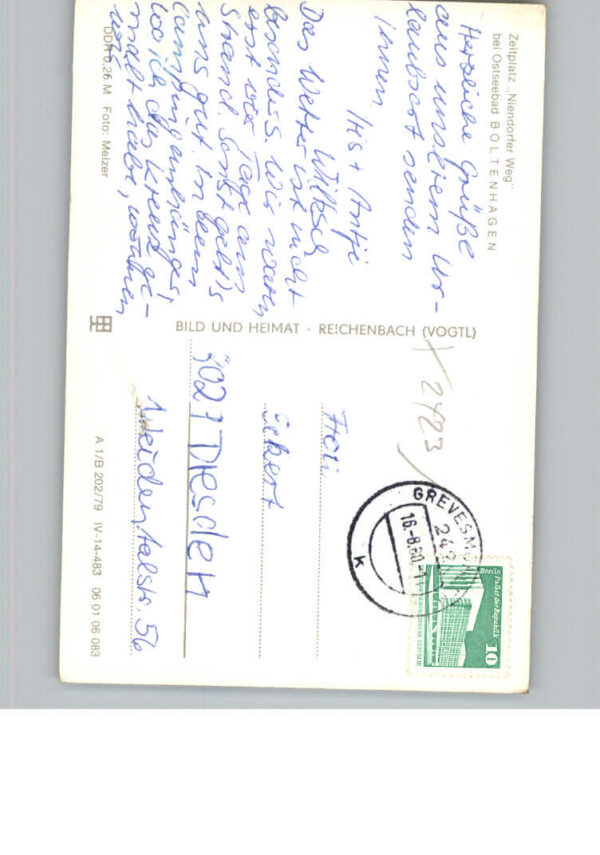 Zeltplatz „Niendorfer Weg"
bei Ostseebad BOLTENHAGEN
Herzliche Grüße
aus unserem Ur-
laubsort senden
Ihnen
Iris + Antje
Das Wetter ist nicht
besonders. Wir waren
erst vier Tage am
Strand. Sonst geht's
uns gut. In dem
Campinganhänger,
wo ich das Kreuz ge-
malt habe, wohnen
wir.
DDR 0,25 M Foto: Melzer
BILD UND HEIMAT · REICHENBACH (VOGTL)
X 2423
Frau
8027 Dresden
Weidentalstr. 56
A 1/B 202/79 IV-14-483 06 01 06 083
GREVESM
242
16.-8.80-1
K
Berlin
Palast der Republik
10